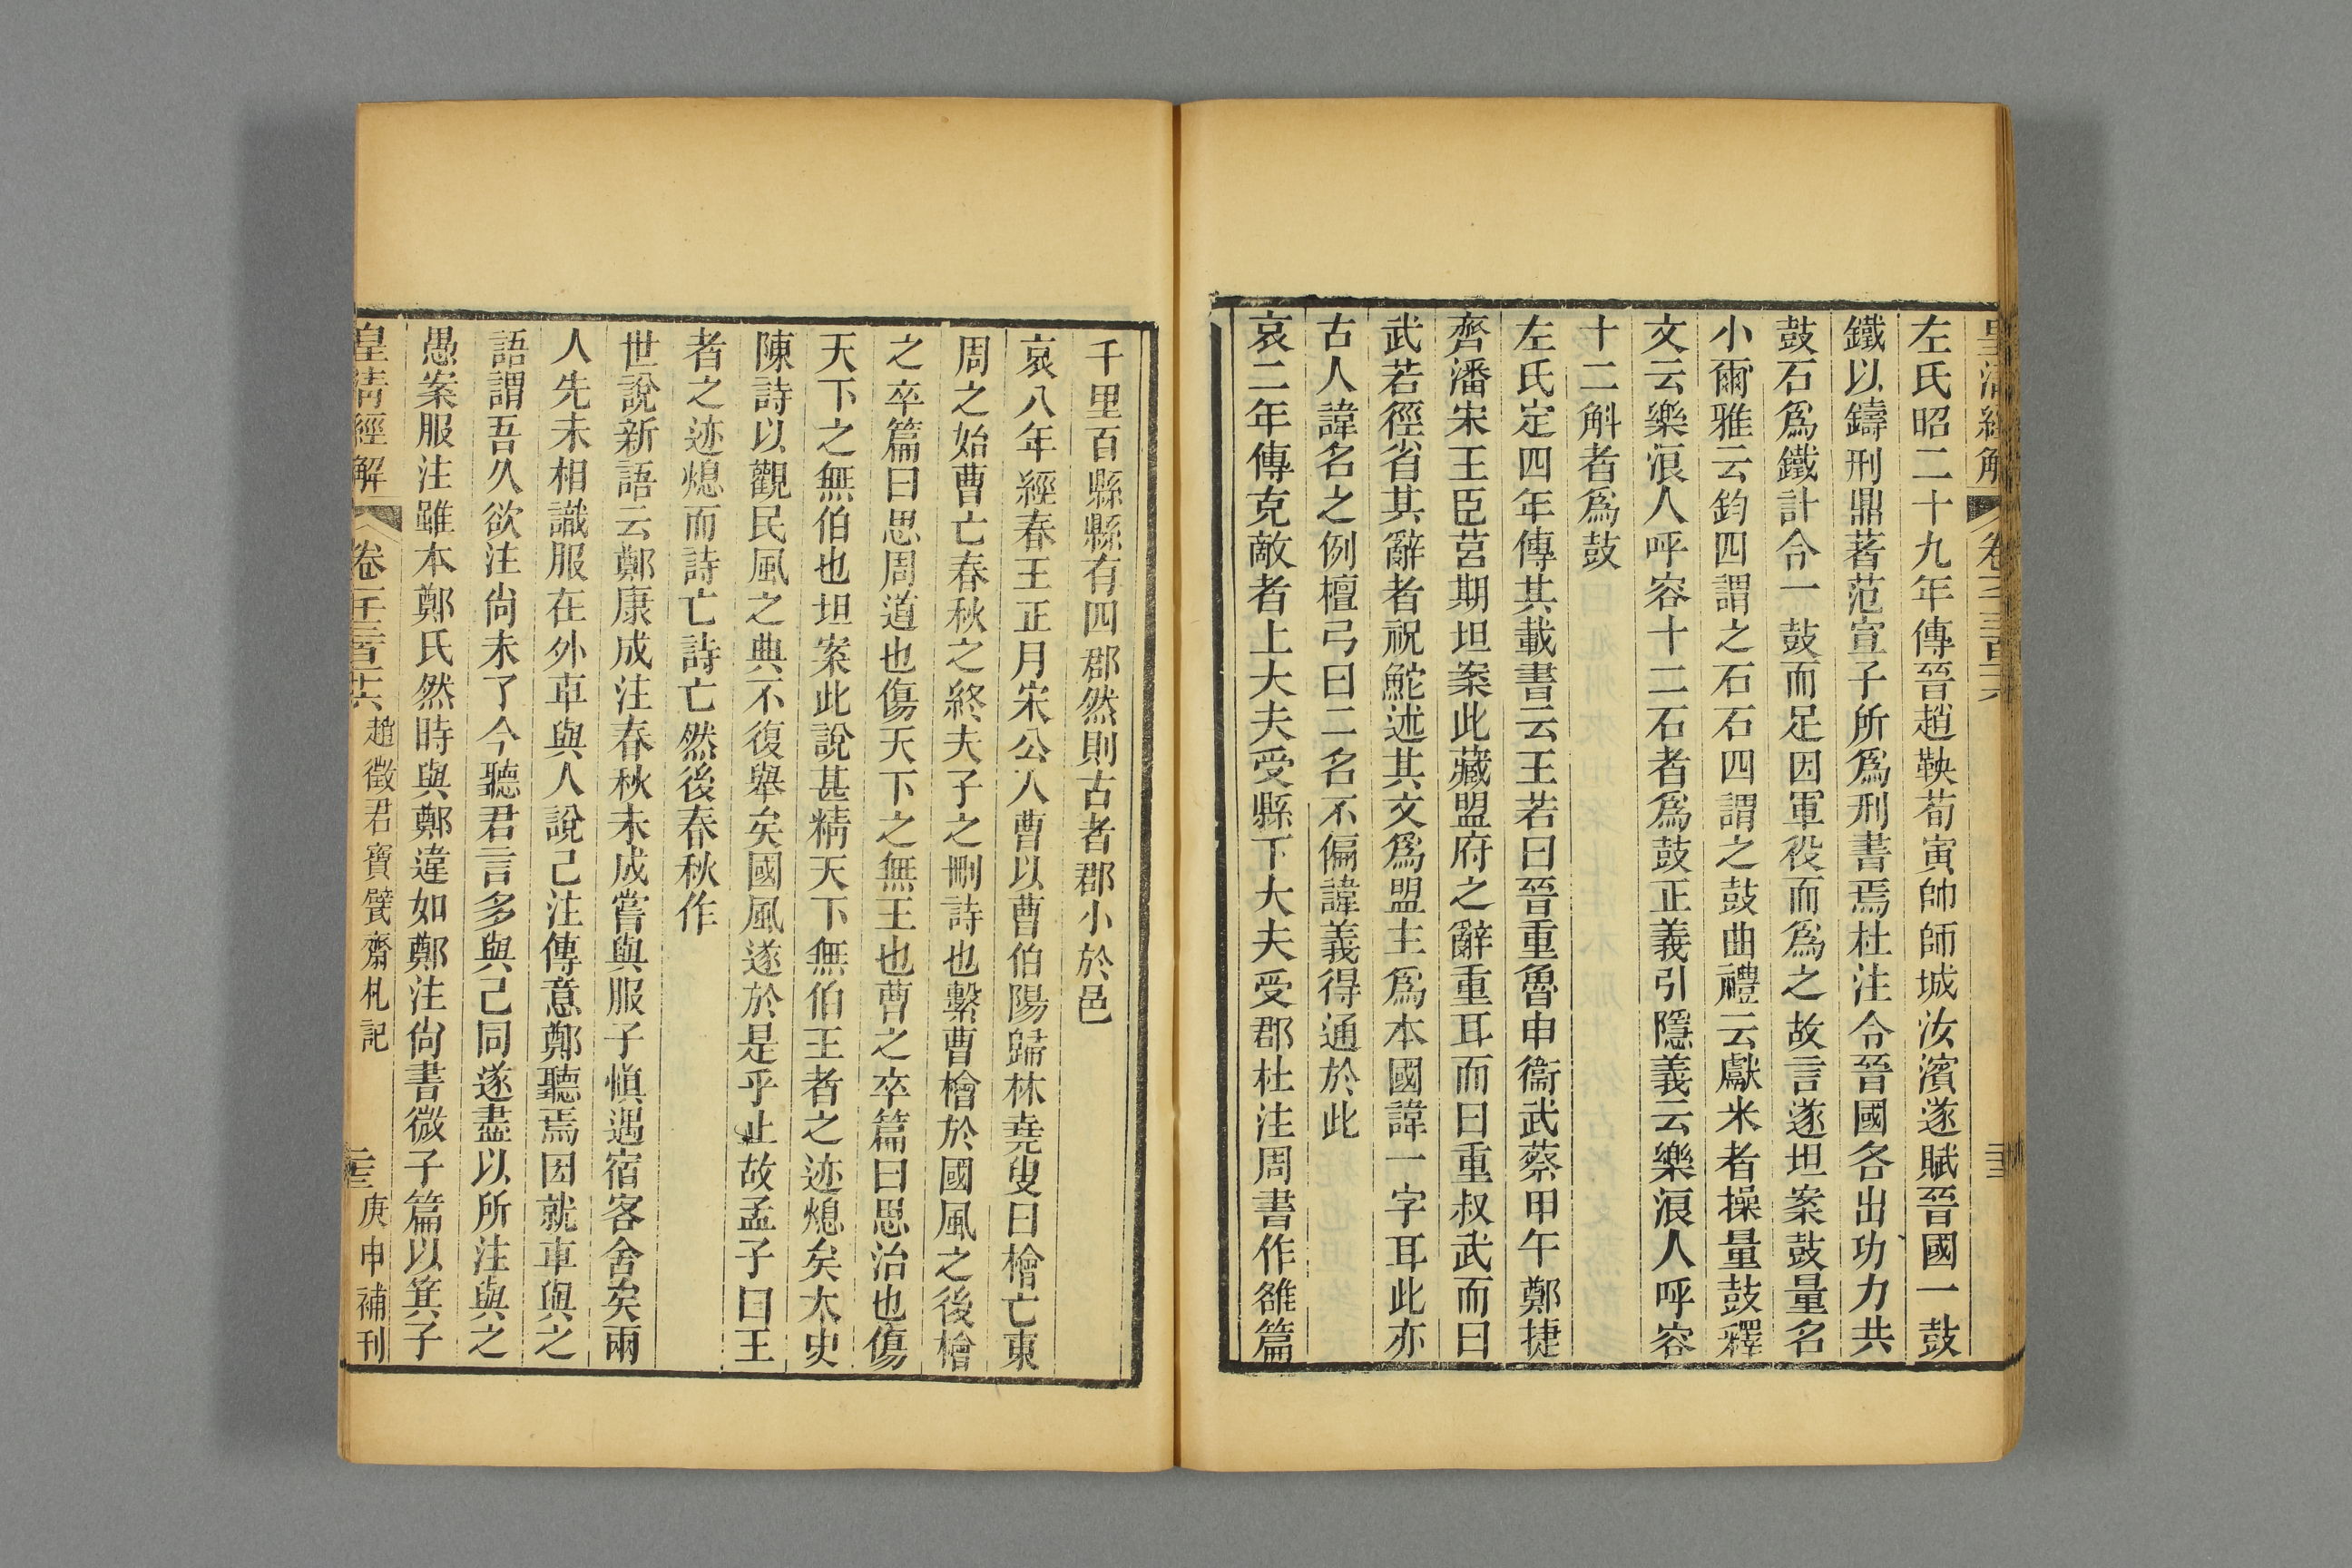 左氏昭二十九年傳晉趙鞅荀寅帥師城汝濱遂賦晉國一鼓
鐵以鑄刑鼎著范宣子所爲刑書焉杜注令晉國各出功力共
鼓石爲鐵計令一鼓而足因軍役而爲之故言遂坦案鼓量名
小爾雅云鈞四謂之石石四謂之鼓曲禮云獻米者操量鼓釋
文云樂浪人呼容十二石者爲鼓正義引隱義云樂浪人呼容
十二斛者爲鼓
左氏定四年傳其載書云王若曰晉重魯申衞武蔡甲午鄭捷
齊潘宋王臣莒期坦案此藏盟府之辭重耳而曰重叔武而曰
武若徑省其辭者祝鮀述其文爲盟主爲本國諱一字耳此亦
古人諱名之例檀弓曰二名不偏諱義得通於此
哀二年傳克敵者上大夫受縣下大夫受郡杜注周書作雒篇
千里百縣縣有四郡然則古者郡小於邑
哀八年經春王正月宋公入曹以曹伯陽歸林堯叟曰檜亡東
周之始曹亡春秋之終夫子之刪詩也繫曹檜於國風之後檜
之卒篇曰思周道也傷天下之無王也曹之卒篇曰思治也傷
天下之無伯也坦案此說甚精天下無伯王者之迹熄矣太史
陳詩以觀民風之典不復舉矣國風遂於是乎止故孟子曰王
者之迹熄而詩亡詩亡然後春秋作
世說新語云鄭康成注春秋未成嘗與服子愼遇宿客舍矣兩
人先未相識服在外車與人說己注傳意鄭聽焉因就車與之
語謂吾久欲注尙未了今聽君言多與己同遂盡以所注與之
愚案服注雖本鄭氏然時與鄭違如鄭注尙書微子篇以箕子
皇清經解 卷一千三百十六 趙徵君寶甓齋札記 庚申補刊